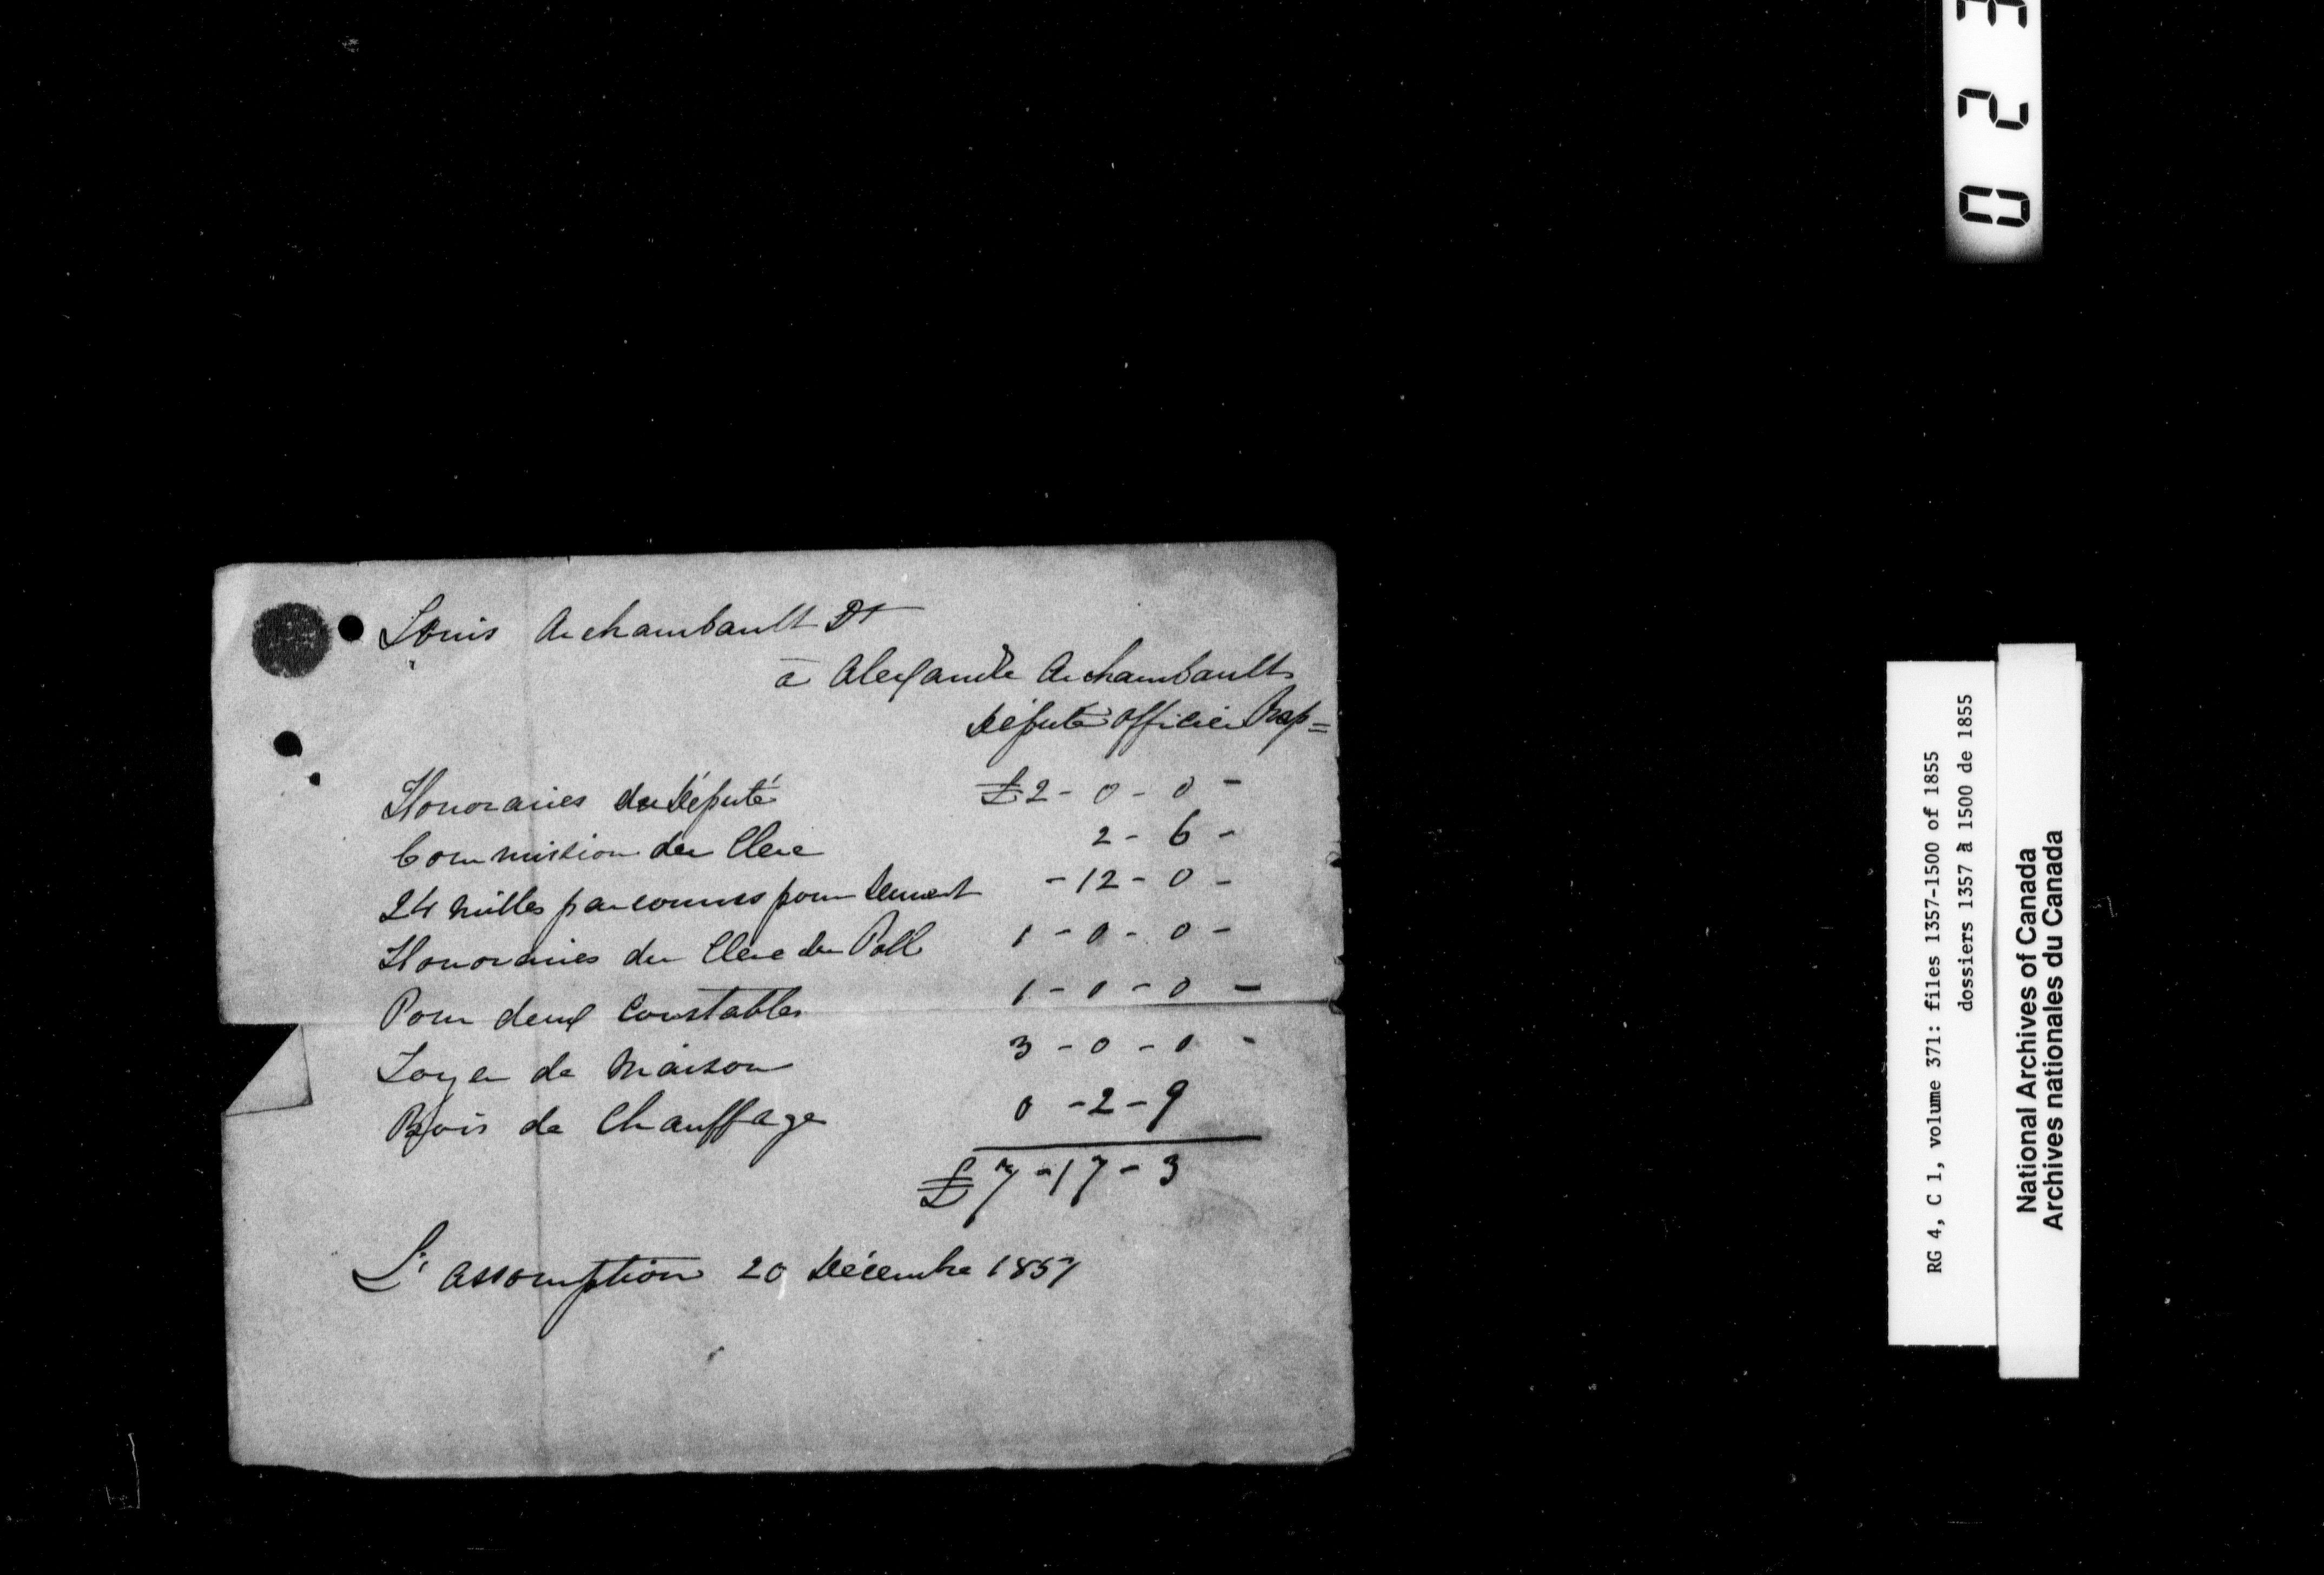 Louis Archambault Dt
à Alexandre Archambault
Député Officier Rap=
Honoraires du Député £2-0-0-
Commission du Clerc 2-6-
24 milles parcourus pour serment -12-0-
Honoraires du Clerc du Poll 1-0-0-
Pour deux Constables 1-0-0-
Loyer de Maison 3-0-0-
Bois de Chauffage 0-2-9
£7-17-3
L'assomption 20 Décembre 1857
0 2 3
RG 4, C 1, volume 371: files 1357-1500 of 1855
dossiers 1357 à 1500 de 1855
National Archives of Canada
Archives nationales du Canada